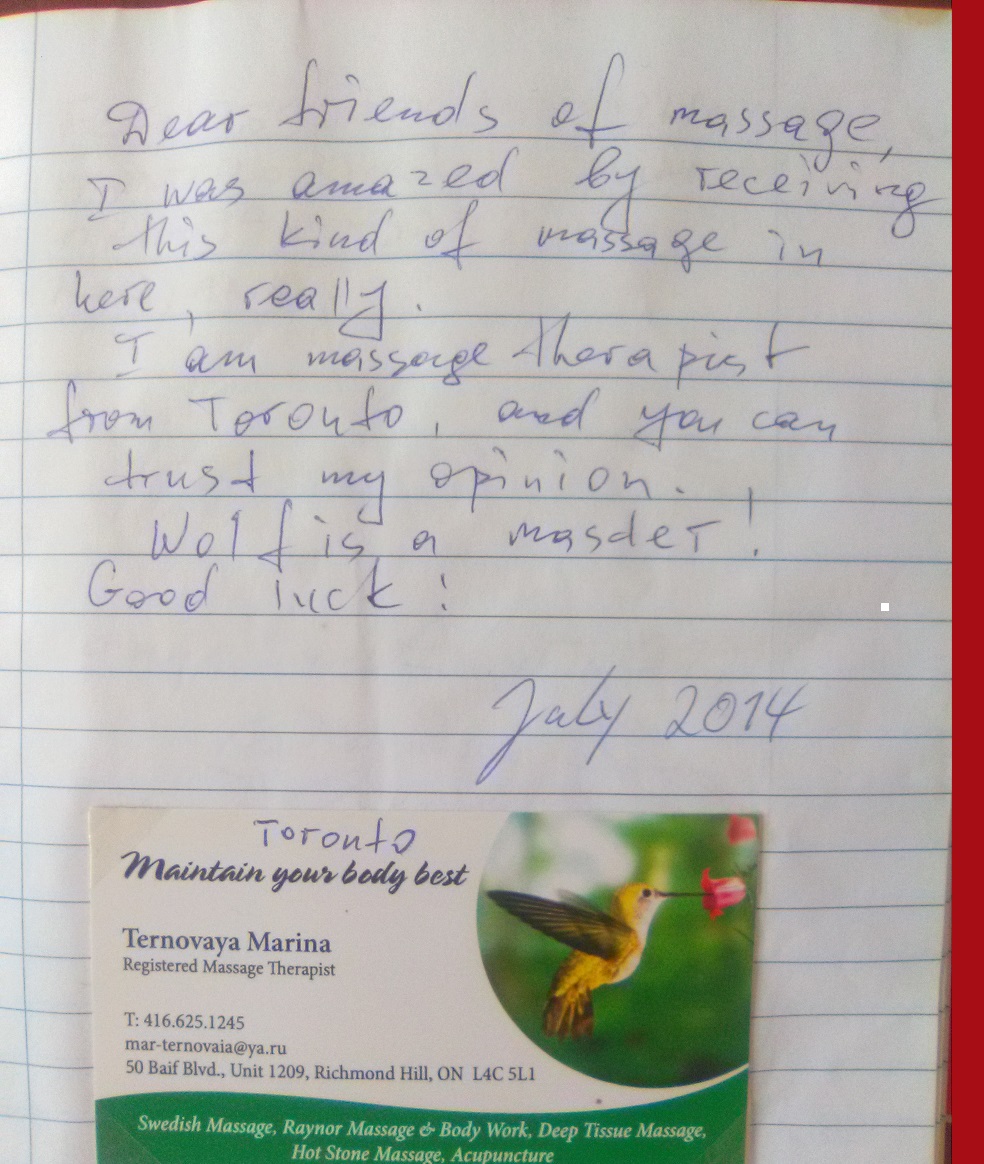 Dear friends of massage,
I was amazed by receiving
this kind of massage in
here, really.
I am massage therapist
from Toronto, and you can
trust my opinion.
Wolf is a masder!
Good luck!
July 2014
Toronto
Maintain your body best
Ternovaya Marina
Registered Massage Therapist
T: 416.625.1245
mar-ternovaia@ya.ru
50 Baif Blvd., Unit 1209, Richmond Hill, ON L4C 5L1
Swedish Massage, Raynor Massage & Body Work, Deep Tissue Massage,
Hot Stone Massage, Acupuncture